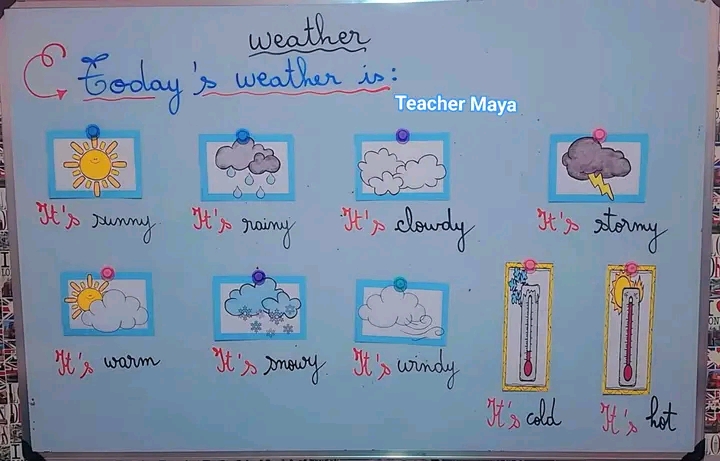 weather
Today's weather is:
Teacher Maya
It's sunny
It's rainy
It's clowdy
It's stormy
It's warm
It's snowy
It's windy
It's cold
It's hot